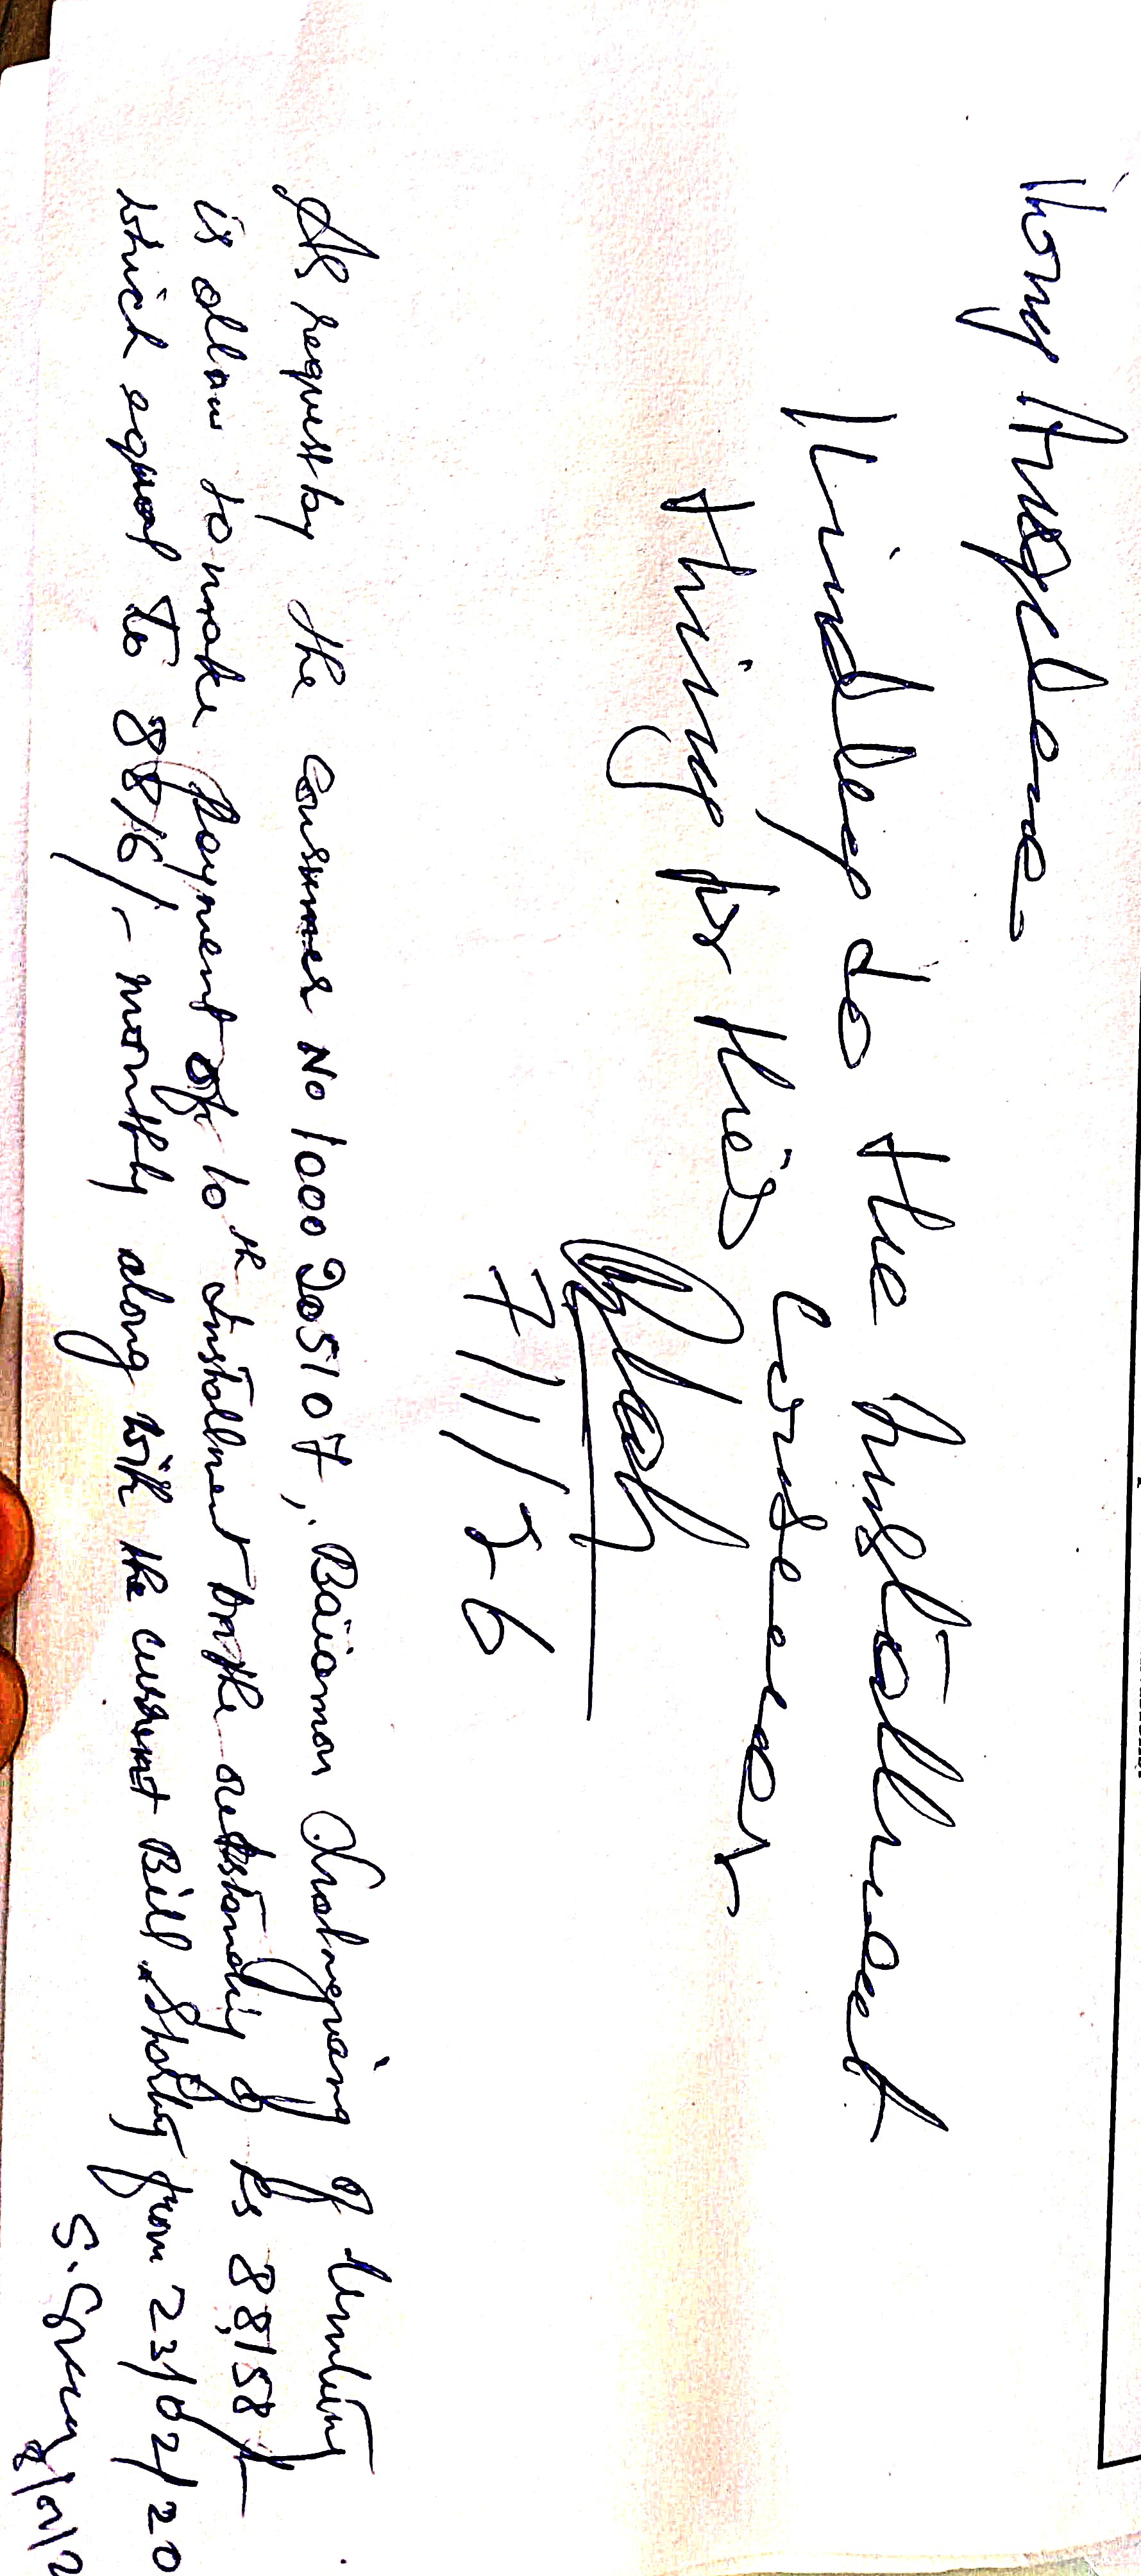 Kong Angelene
Kindly do the Installment
thing for this consumer
7/1/26
As request by the consumer No 1000205107, Baiamon of Umlyng
is allow to make payment of 10 th Installment in the outstanding of Rs 88,158/-
which equal to 8816/- monthly along with the current Bill Starting from 23/02/20